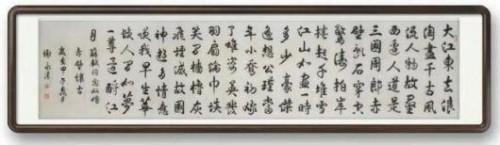 大江東去浪
淘盡千古風
流人物故壘
西邊人道是
三國周郎赤
壁乱石穿空
驚濤拍岸
捲起千堆雪
江山如畫一時
多少豪傑
遥想公瑾當
年小喬初嫁
了雄姿英發
羽扇綸巾談
笑間檣櫓灰
飛煙滅故國
神遊多情應
笑我早生華
髮人生如夢
一尊還酹江
月 蘇軾詞念奴嬌
赤壁懷古